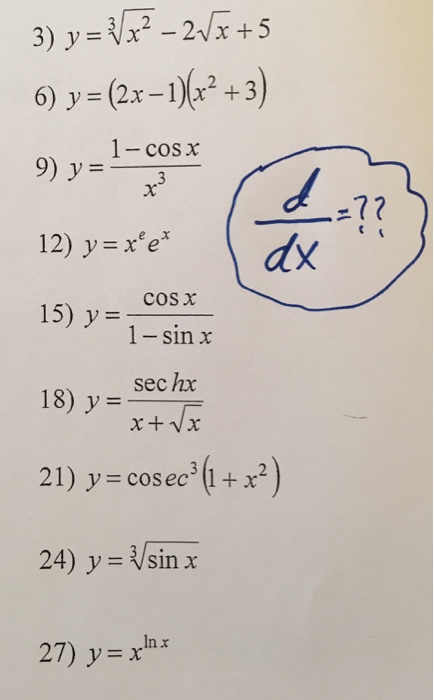 3) y = ∛x² − 2√x + 5
6) y = (2x − 1)(x² + 3)
9) y = (1 − cos x)/x³
d/dx = ??
12) y = xᵉeˣ
15) y = cos x/(1 − sin x)
18) y = sec hx/(x + √x)
21) y = cosec³(1 + x²)
24) y = ∛sin x
27) y = x^(ln x)